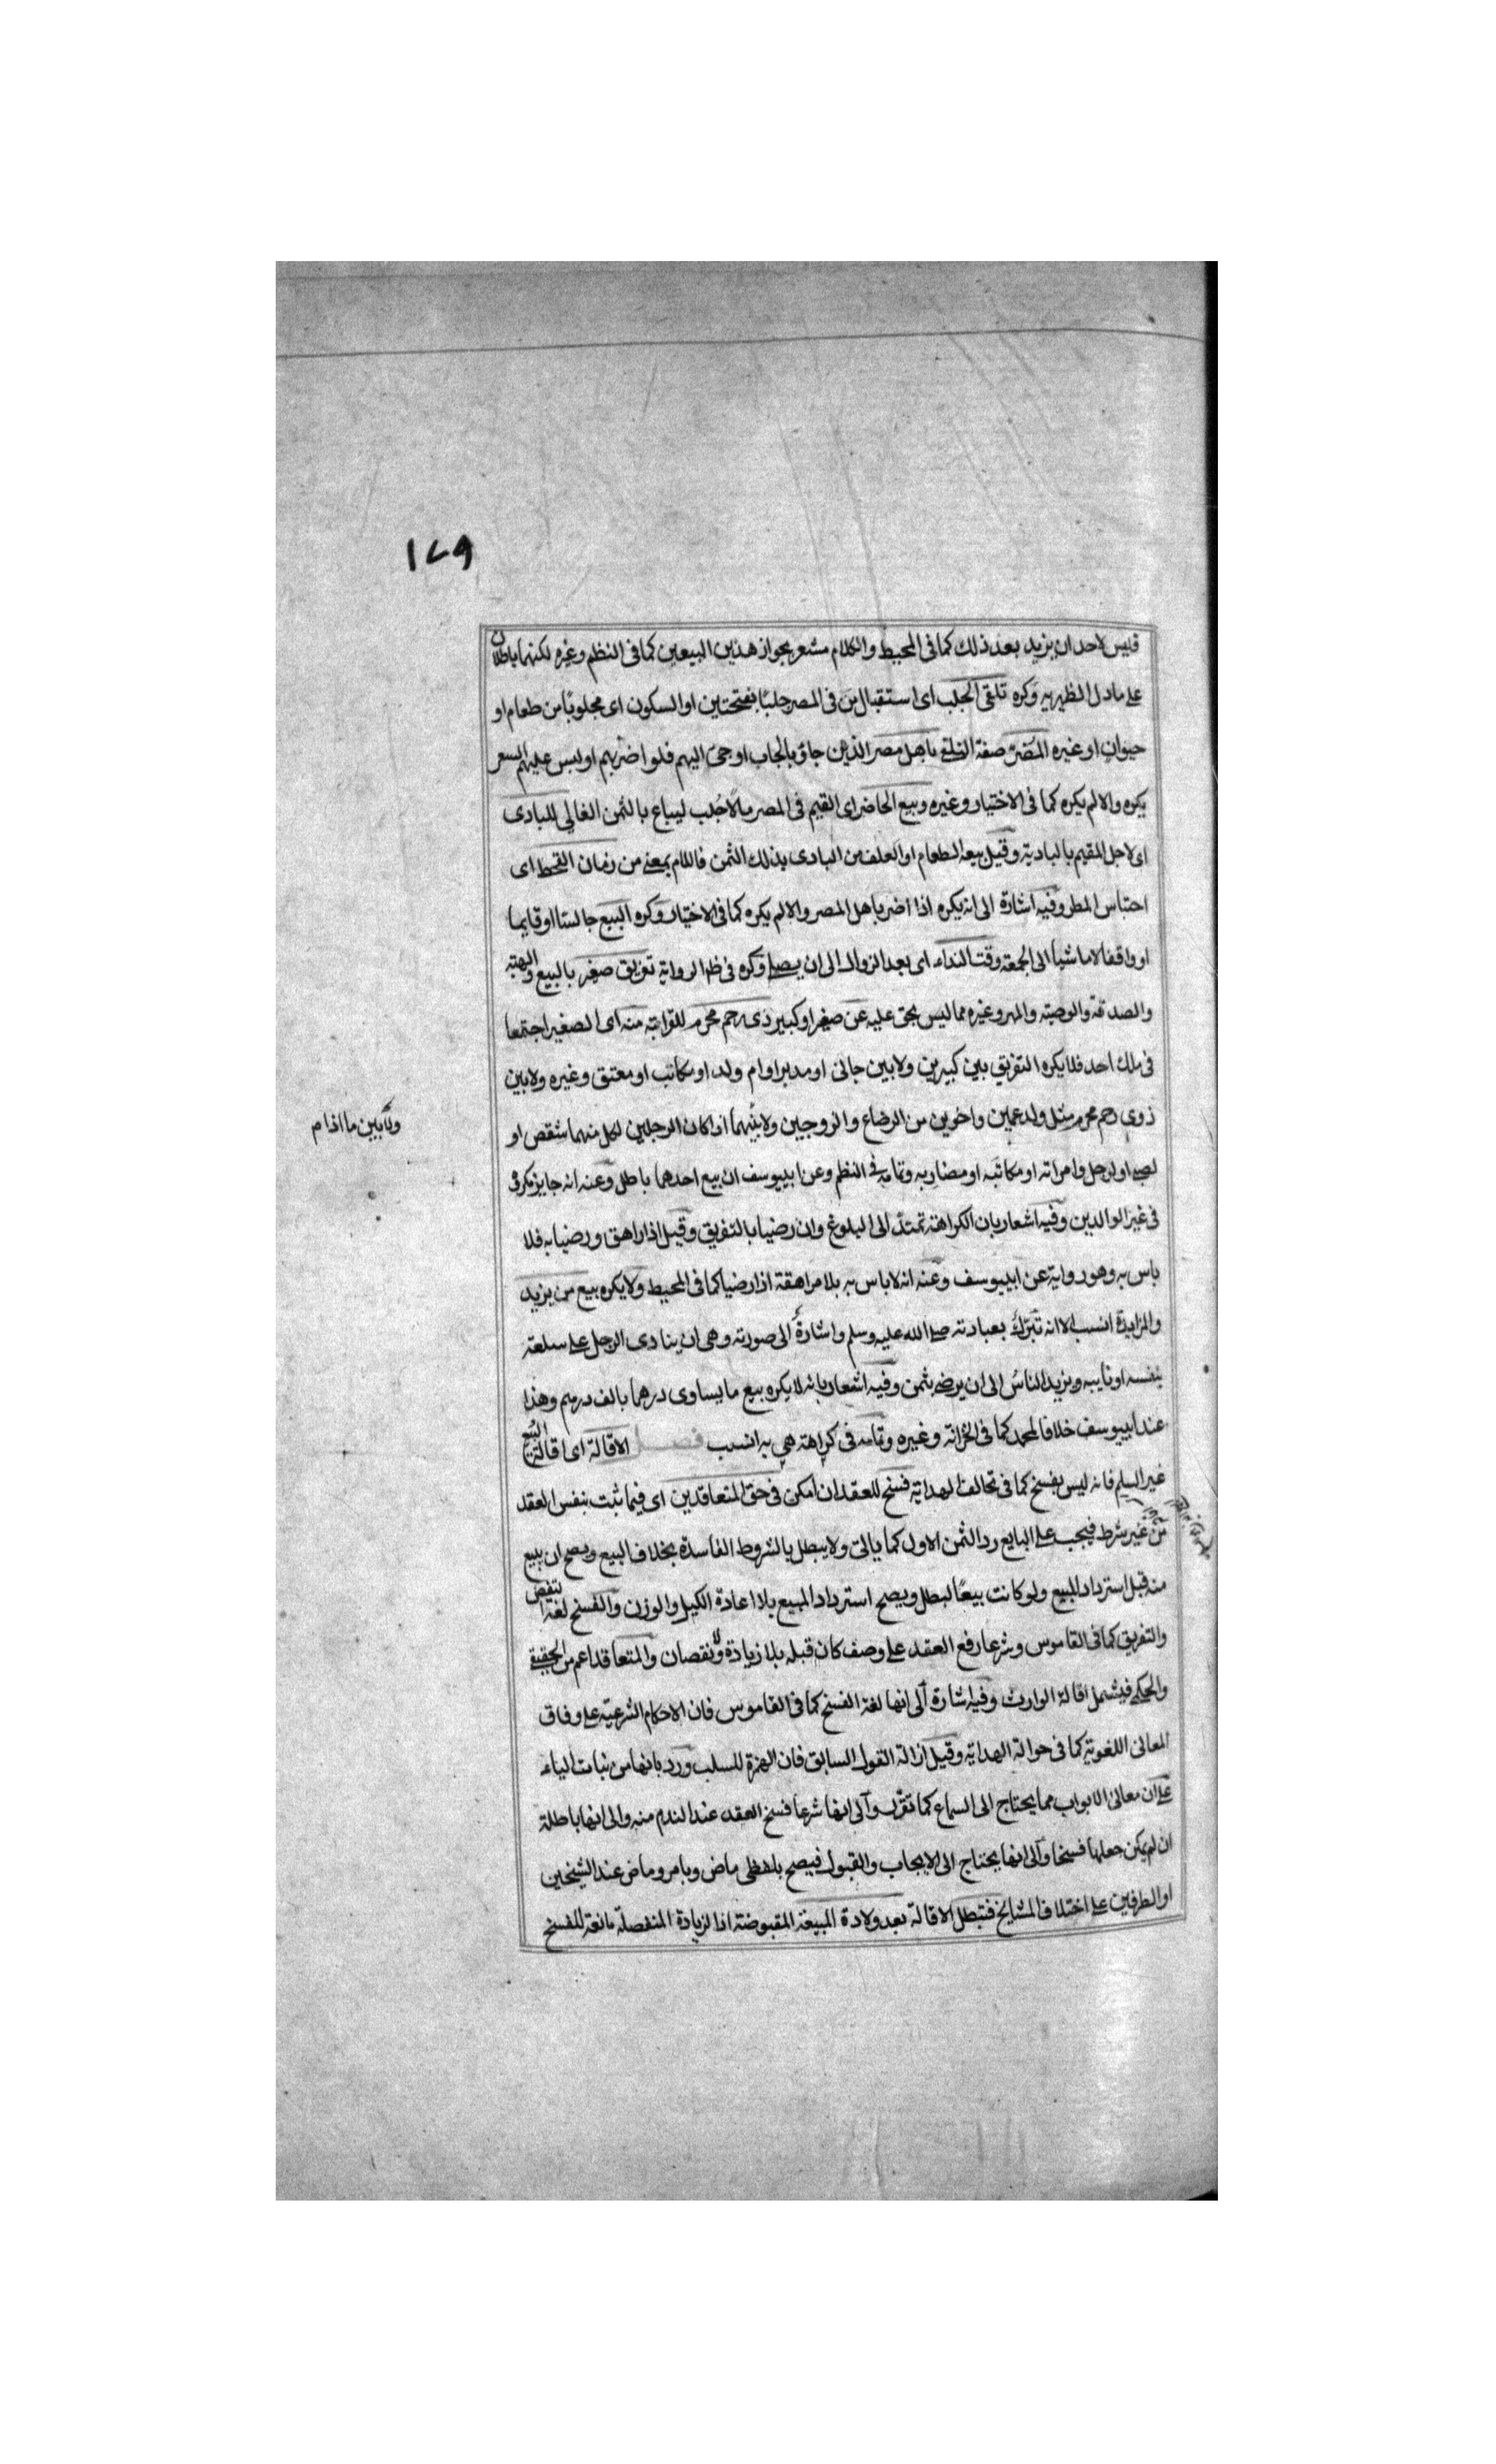 ١٧٩
فليس لاحد ان يزيد بعد ذلك كما فى المحيط والكلام مشعر بجواز هذين البيعين كما فى النظم وغيره لكنهما باطلان
على ما دل الظهيريه وكره تلقى الجلب اى استقبال من فى المصر جلبًا بفتحتين او السكون اى مجلوبًا من طعام او
حيوان او غيره المُضرّ صفة التلقى باهل مصر الذين جاؤ بالجاب او جئ اليهم فلو اضر بهم او لبس عليهم السعر
يكره والا لم يكره كما فى الاختيار وغيره وبيع الحاضر اى القيم فى المصر مالًا جُلب ليباع بالثمن الغالى للبادى
اى لاجل المقيم بالبادية وقيل بيعه الطعام او العلف من البادى بذلك الثمن فاللام بمعنى من زمان القحط اى
احتباس المطر وفيه اشارة الى انه يكره اذا اضر باهل المصر والا لم يكره كما فى الاختيار وكره البيع جالسا او قايما
او واقفا لا ماشيا الى الجمعة وقت النداء اى بعد الزوال الى ان يصلى وكره فى ظاهر الرواية تفريق صغير بالبيع والهبة
والصدقة والوصية والمهر وغيره مما ليس بحق عليه عن صغير او كبير ذى رحم محرم للقرابة منه اى الصغير اجتمعا
فى ملك احد فلا يكره التفريق بين كبيرين ولا بين جانى او مدبر او ام ولد او مكاتب او معتق وغيره ولا بين
ذوى رحم محرم مثل ولد عمين واخوين من الرضاع والزوجين ولا بينهما اذا كان الرجلين لكل منهما شقص او
ولا بين ما اذا م
لصبى او لرجل وامراته او مكاتبه او مضاربه وتمامه فى النظم وعن ابى يوسف ان بيع احدهما باطل وعنه انه جايز مكروه
فى غير الوالدين وفيه اشعار بان الكراهة تمتد الى البلوغ وان رضيا بالتفريق وقيل اذا راهق ورضيا به فلا
باس به وهو رواية عن ابى يوسف وعنه انه لا باس به بلا مراهقة اذا رضيا كما فى المحيط ولا يكره بيع من يزيد
والمزايدة انسب الا انه تبرّك بعبادته صلى الله عليه وسلم واشارة الى صورته وهى ان ينادى الرجل على سلعته
بنفسه او نايبه ويزيد الناسُ الى ان يرضى بثمن وفيه اشعار بانه لا يكره بيع ما يساوى درهما بالف درهم وهذا
عند ابى يوسف خلافا لمحمد كما فى الخزانة وغيره وتمامه فى كراهته هى به انسب فصل الاقالة اى اقالة البيع
غير السلم فانه ليس بفسخ كما فى تحالف الهداية فسخ للعقد ان امكن فى حق المتعاقدين اى فيما ثبت بنفس العقد
من غير شرط فيجب على البايع رد الثمن الاول كما ياتى ولا يبطل بالشروط الفاسدة بخلاف البيع ويصح ان يبيع
منه قبل استرداد المبيع ولو كانت بيعًا لبطل ويصح استرداد المبيع بلا اعادة الكيل والوزن والفسخ لغة النقض
والتفريق كما فى القاموس وشرعا رفع العقد على وصف كان قبله بلا زيادة ولا نقصان والمتعاقد اعم من الحقيقى
والحكمى فيشمل اقالة الوارث وفيه اشارة الى انها لغة الفسخ كما فى القاموس فان الاحكام الشرعية على وفاق
المعانى اللغوية كما فى حوالة الهداية وقيل ازالة القول السابق فان الهمزة للسلب ورد بانها من بنات الياء
على ان معانى الابواب مما يحتاج الى السماع كما تقرر والى انها شرعا فسخ العقد عند الندم منه والى انها باطلة
ان لم يمكن جعلها فسخا والى انها يحتاج الى الايجاب والقبول فيصح بلفظى ماض وبامر وماض عند الشيخين
او الطرفين على اختلاف المشايخ فتبطل الاقالة بعد ولادة المبيعة المقبوضة اذ الزيادة المنفصلة مانعة للفسخ